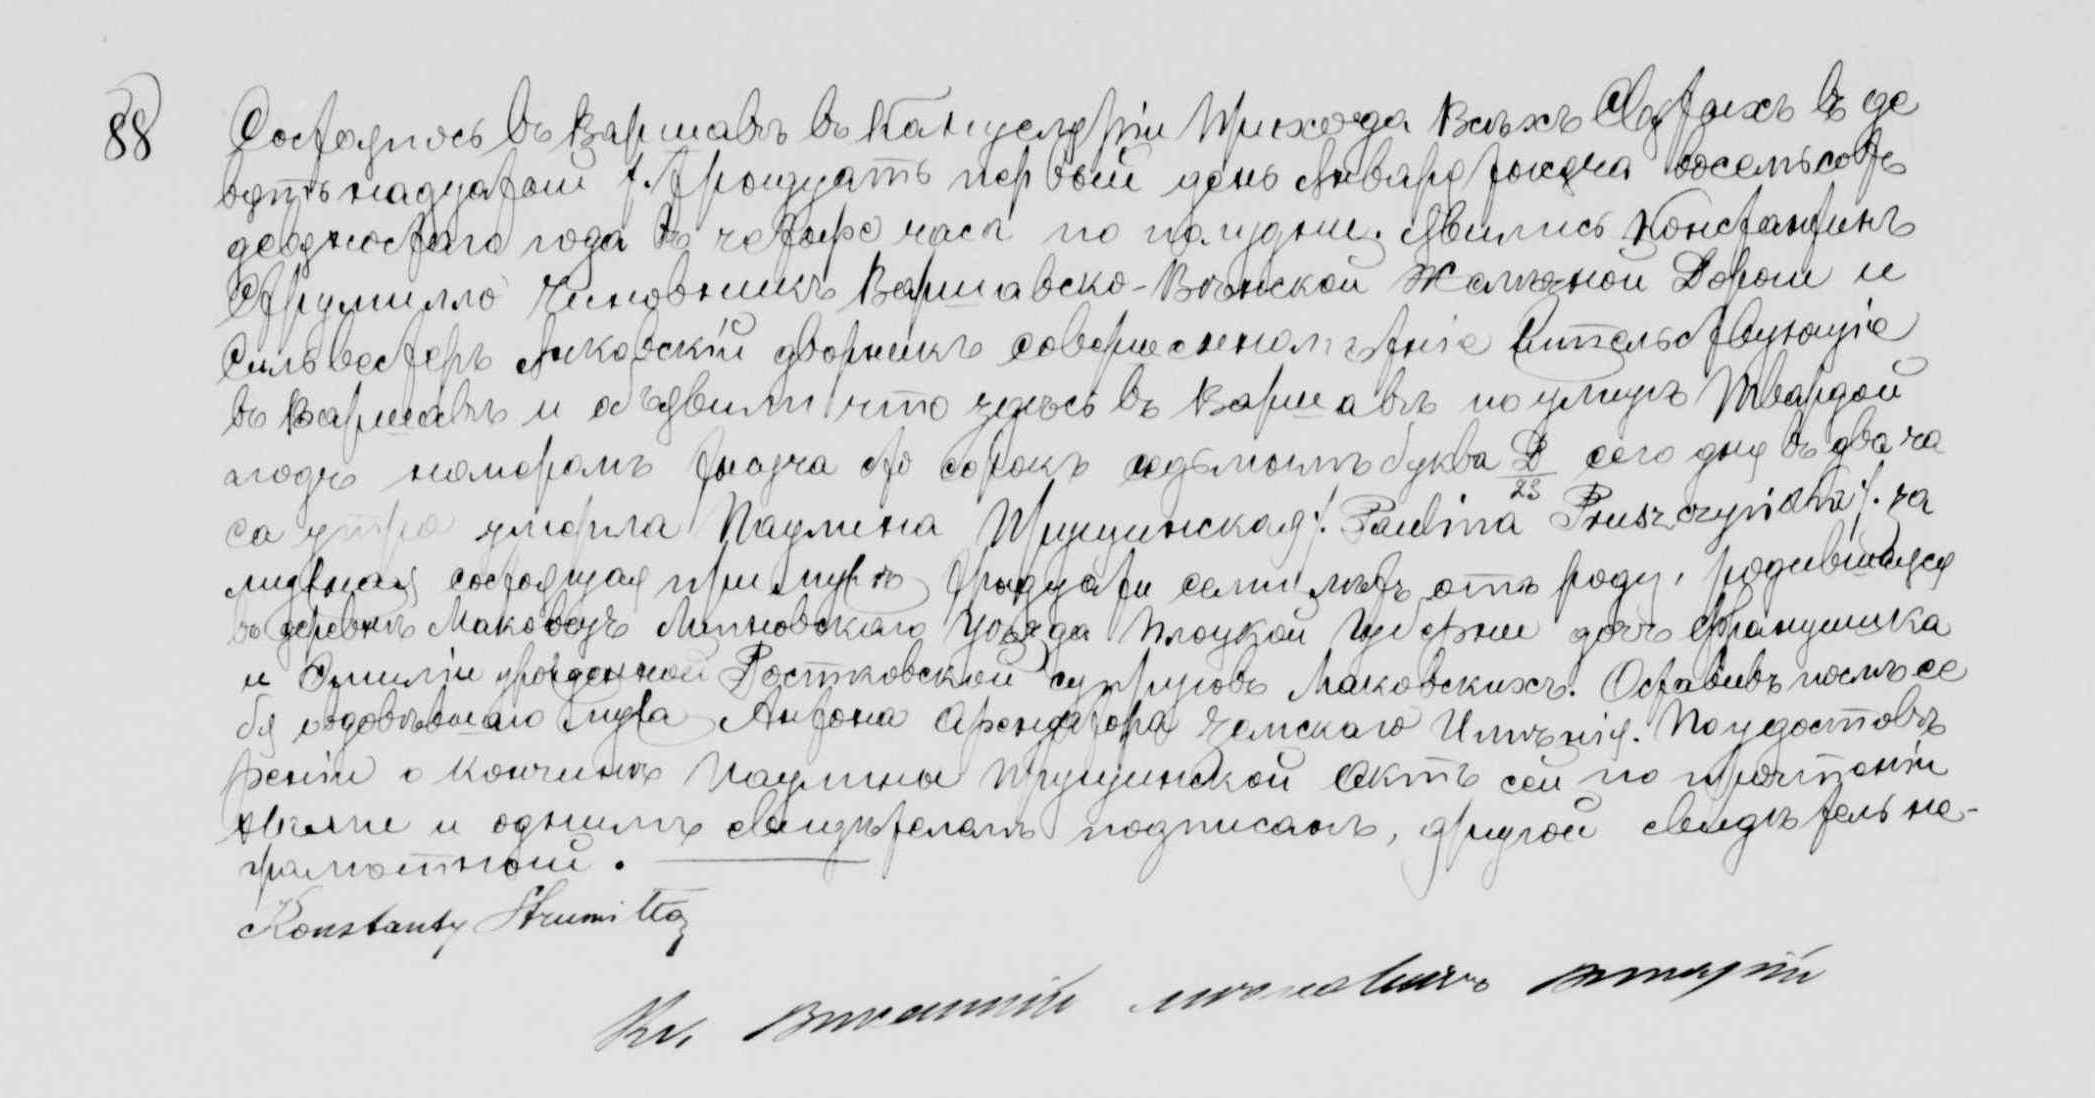 88
Состоялось въ Варшавѣ въ Канцеляріи Прихода Всѣхъ Святыхъ въ де
вятьнадцатый /:тридцать первый день Января тысяча восемьсотъ
девяностаго года въ четыре часа по полудни. Явились Константинъ
Струмилло Чиновникъ Варшавско-Вѣнской Желѣзной Дороги и
Сильвестеръ дворникъ совершеннолѣтніе жительствующіе
въ Варшавѣ и объявили что здѣсь въ Варшавѣ по улицѣ Твардой
подъ номеромъ тысяча сто сорокъ седьмымъ буква D/23 сего дня въ два ча
са утра умерла Паулина Прущинская /: Paulina Pruszczyńska :/ за
мужная состоящая при мужѣ тридцати семи лѣтъ отъ роду, родившаяся
въ деревнѣ Маковецъ Липновскаго Уѣзда Плоцкой Губерніи дочь Францишка
и Эмиліи урожденной Ростковской супруговъ Маковскихъ. Оставивъ послѣ се
бя овдовѣвшаго мужа Антона Арендатора Земскаго Имѣнія. По удостовѣ
реніи о кончинѣ Паулины Прущинской Актъ сей по прочтеніи
Нами и однимъ свидѣтелемъ подписанъ, другой свидѣтель не-
грамотный.
Konstanty Strumiłło
Кс. Викарій